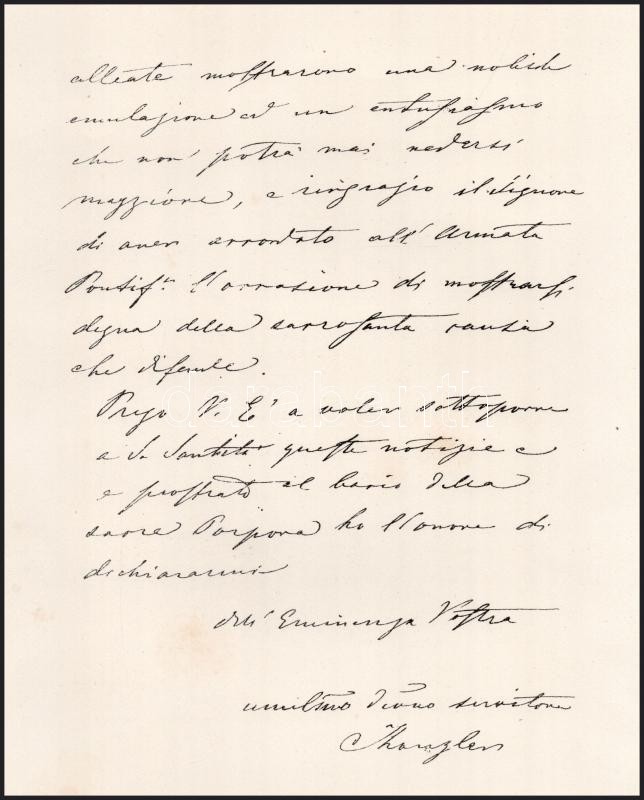 alleate mostrarono una nobile
emulazione ed un entusiasmo
che non potrà mai vedersi
maggiore, e ringrazio il Signore
di aver accordato all'Armata
Pontif.ª l'occasione di mostrarsi
degna della sacrosanta causa
che difende.
Prego V. E. a voler sottoporre
a S. Santità queste notizie e
e prostrato al bacio della
sacra Porpora ho l'onore di
dichiararmi
dell'Eminenza Vostra
umilmo devmo servitore
Kanzler
darabanth